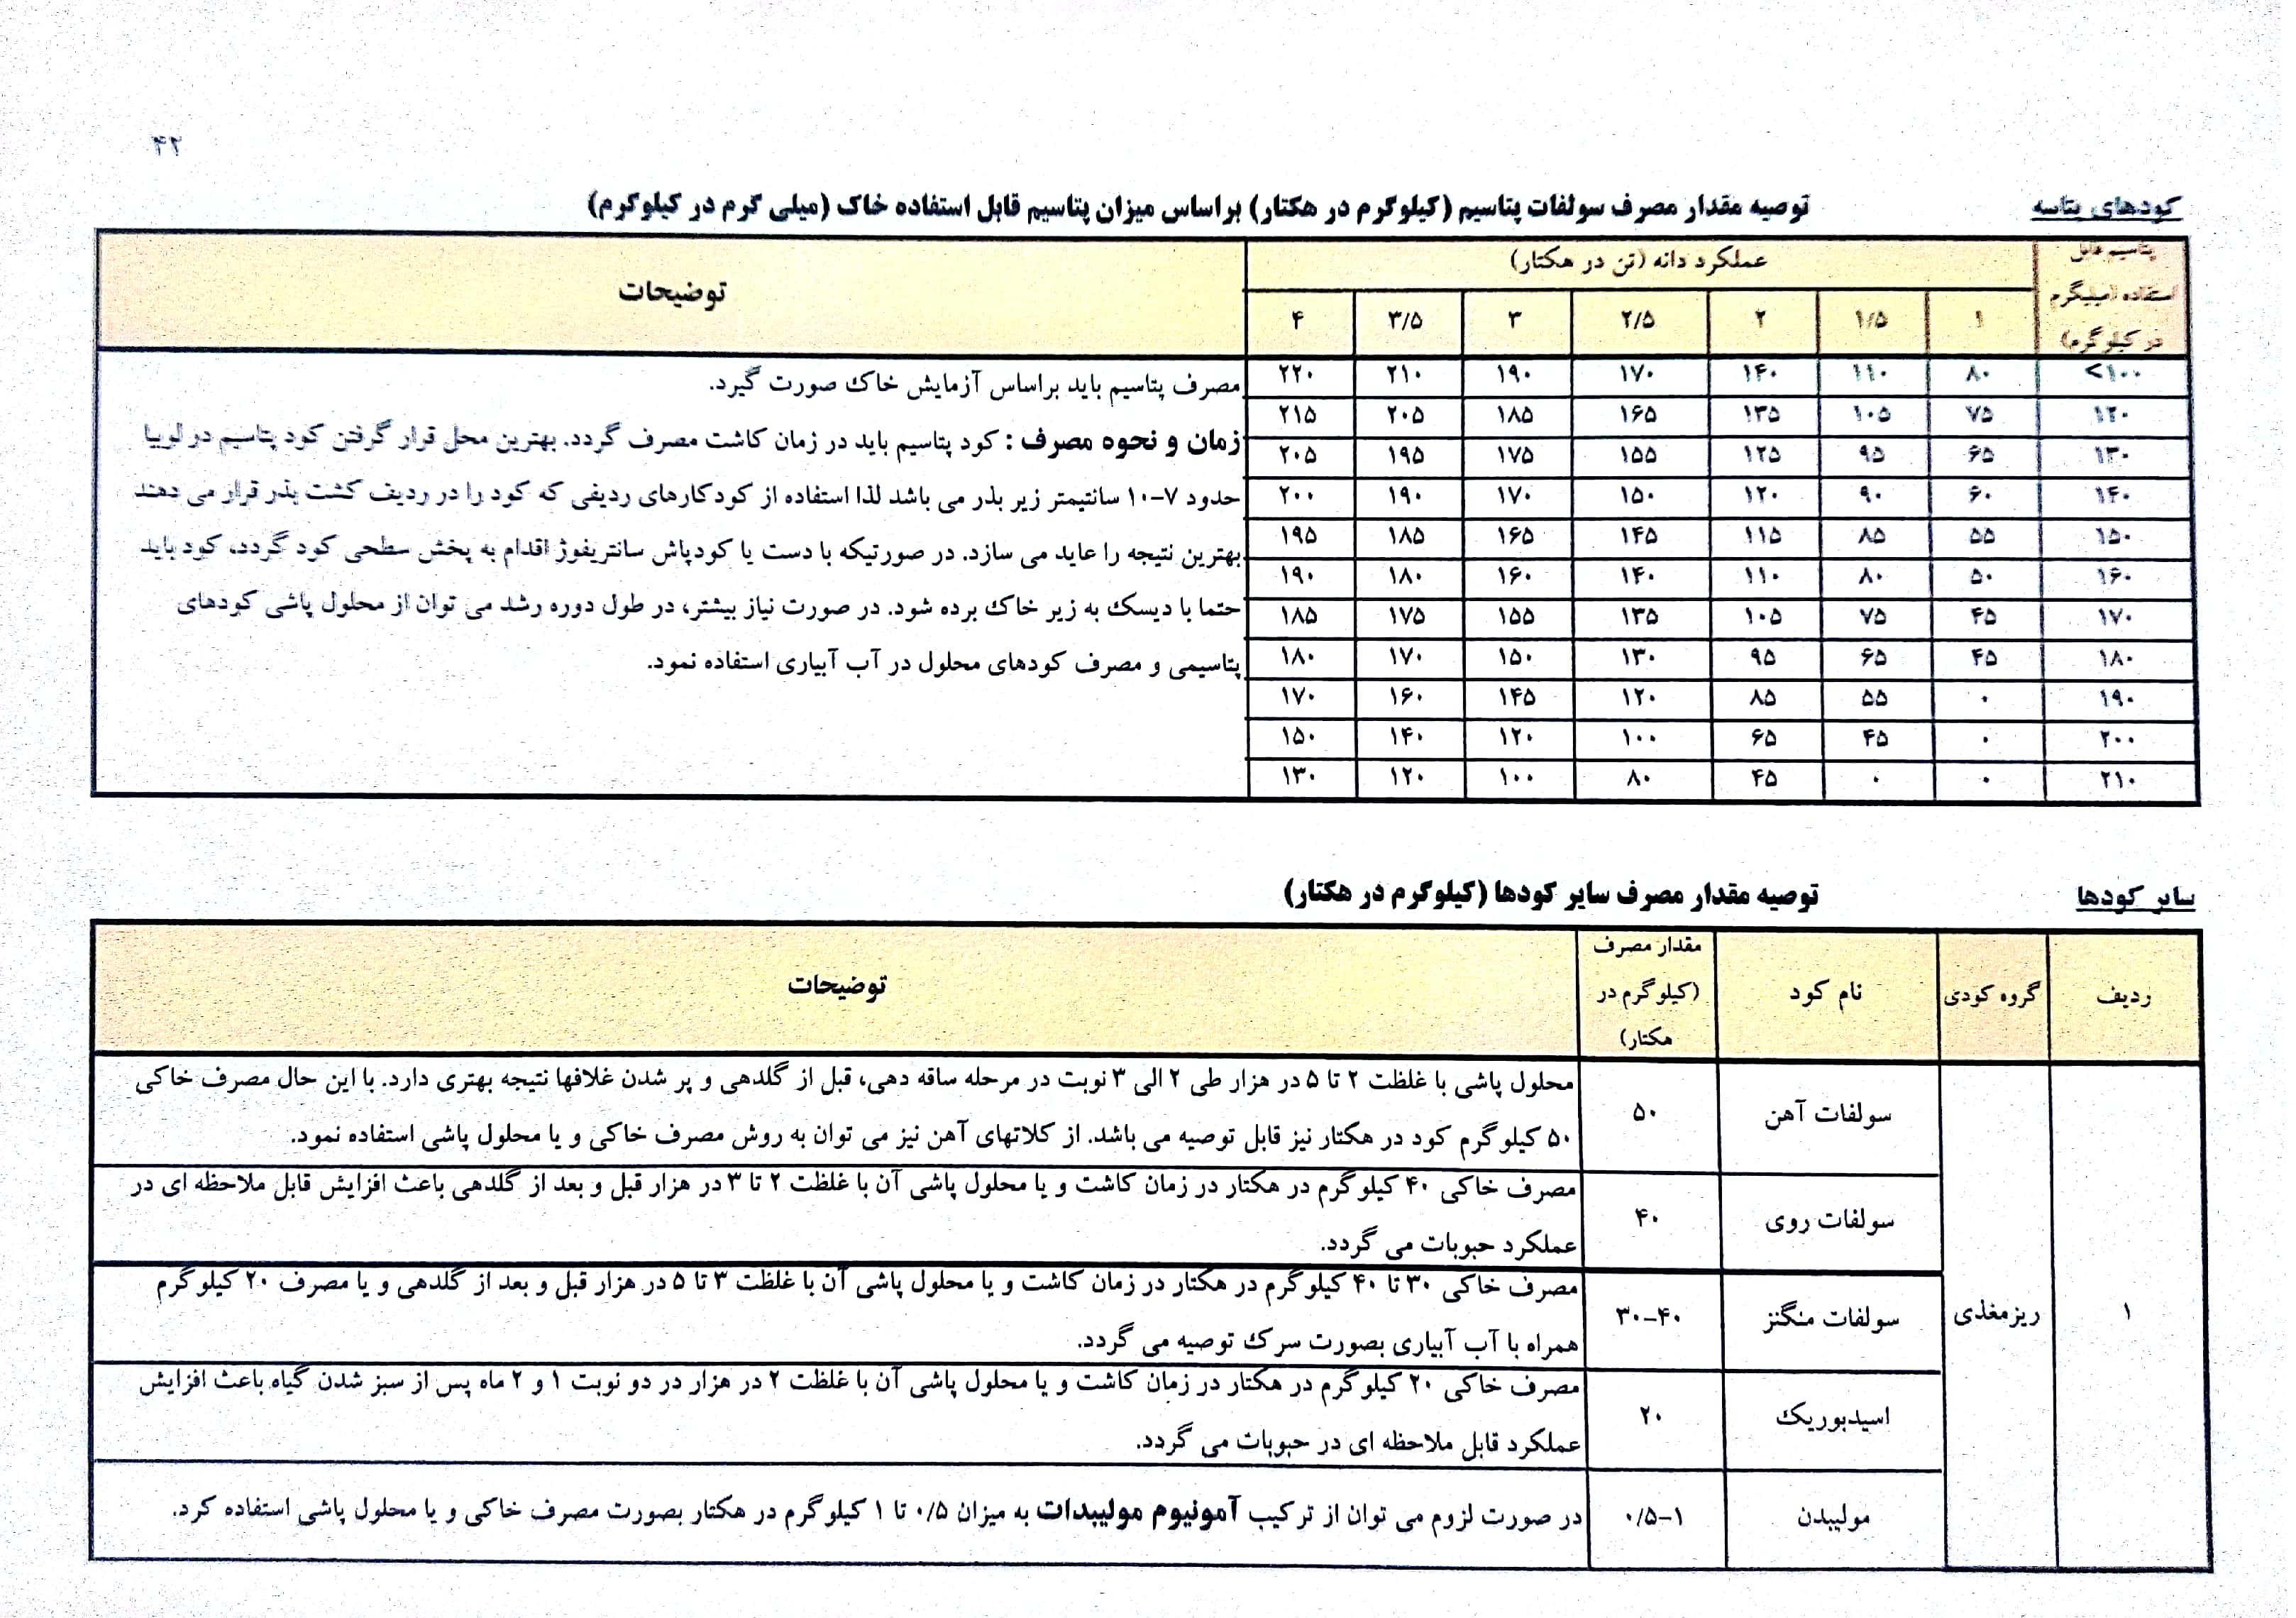 ۴۲
کودهای پتاسه
توصیه مقدار مصرف سولفات پتاسیم (کیلوگرم در هکتار) براساس میزان پتاسیم قابل استفاده خاک (میلی گرم در کیلوگرم)
پتاسیم قابل استفاده (میلیگرم در کیلوگرم)
عملکرد دانه (تن در هکتار)
توضیحات
۱ ۱/۵ ۲ ۲/۵ ۳ ۳/۵ ۴
<۱۰۰ ۸۰ ۱۱۰ ۱۴۰ ۱۷۰ ۱۹۰ ۲۱۰ ۲۲۰
۱۲۰ ۷۵ ۱۰۵ ۱۳۵ ۱۶۵ ۱۸۵ ۲۰۵ ۲۱۵
۱۳۰ ۶۵ ۹۵ ۱۲۵ ۱۵۵ ۱۷۵ ۱۹۵ ۲۰۵
۱۴۰ ۶۰ ۹۰ ۱۲۰ ۱۵۰ ۱۷۰ ۱۹۰ ۲۰۰
۱۵۰ ۵۵ ۸۵ ۱۱۵ ۱۴۵ ۱۶۵ ۱۸۵ ۱۹۵
۱۶۰ ۵۰ ۸۰ ۱۱۰ ۱۴۰ ۱۶۰ ۱۸۰ ۱۹۰
۱۷۰ ۴۵ ۷۵ ۱۰۵ ۱۳۵ ۱۵۵ ۱۷۵ ۱۸۵
۱۸۰ ۴۵ ۶۵ ۹۵ ۱۳۰ ۱۵۰ ۱۷۰ ۱۸۰
۱۹۰ ۰ ۵۵ ۸۵ ۱۲۰ ۱۴۵ ۱۶۰ ۱۷۰
۲۰۰ ۰ ۴۵ ۶۵ ۱۰۰ ۱۲۰ ۱۴۰ ۱۵۰
۲۱۰ ۰ ۰ ۴۵ ۸۰ ۱۰۰ ۱۲۰ ۱۳۰
مصرف پتاسیم باید براساس آزمایش خاک صورت گیرد.
زمان و نحوه مصرف : کود پتاسیم باید در زمان کاشت مصرف گردد. بهترین محل قرار گرفتن کود پتاسیم در لوبیا
حدود ۷-۱۰ سانتیمتر زیر بذر می باشد لذا استفاده از کودکارهای ردیفی که کود را در ردیف کشت بذر قرار می دهند
بهترین نتیجه را عاید می سازد. در صورتیکه با دست یا کودپاش سانتریفوژ اقدام به پخش سطحی کود گردد، کود باید
حتما با دیسک به زیر خاک برده شود. در صورت نیاز بیشتر، در طول دوره رشد می توان از محلول پاشی کودهای
پتاسیمی و مصرف کودهای محلول در آب آبیاری استفاده نمود.
سایر کودها
توصیه مقدار مصرف سایر کودها (کیلوگرم در هکتار)
ردیف
گروه کودی
نام کود
مقدار مصرف
(کیلوگرم در
هکتار)
توضیحات
۱
ریزمغذی
سولفات آهن
۵۰
محلول پاشی با غلظت ۲ تا ۵ در هزار طی ۲ الی ۳ نوبت در مرحله ساقه دهی، قبل از گلدهی و پر شدن غلافها نتیجه بهتری دارد. با این حال مصرف خاکی
۵۰ کیلوگرم کود در هکتار نیز قابل توصیه می باشد. از کلاتهای آهن نیز می توان به روش مصرف خاکی و یا محلول پاشی استفاده نمود.
سولفات روی
۴۰
مصرف خاکی ۴۰ کیلوگرم در هکتار در زمان کاشت و یا محلول پاشی آن با غلظت ۲ تا ۳ در هزار قبل و بعد از گلدهی باعث افزایش قابل ملاحظه ای در
عملکرد حبوبات می گردد.
سولفات منگنز
۳۰-۴۰
مصرف خاکی ۳۰ تا ۴۰ کیلوگرم در هکتار در زمان کاشت و یا محلول پاشی آن با غلظت ۳ تا ۵ در هزار قبل و بعد از گلدهی و یا مصرف ۲۰ کیلوگرم
همراه با آب آبیاری بصورت سرک توصیه می گردد.
اسیدبوریک
۲۰
مصرف خاکی ۲۰ کیلوگرم در هکتار در زمان کاشت و یا محلول پاشی آن با غلظت ۲ در هزار در دو نوبت ۱ و ۲ ماه پس از سبز شدن گیاه باعث افزایش
عملکرد قابل ملاحظه ای در حبوبات می گردد.
مولیبدن
۰/۵-۱
در صورت لزوم می توان از ترکیب آمونیوم مولیبدات به میزان ۰/۵ تا ۱ کیلوگرم در هکتار بصورت مصرف خاکی و یا محلول پاشی استفاده کرد.